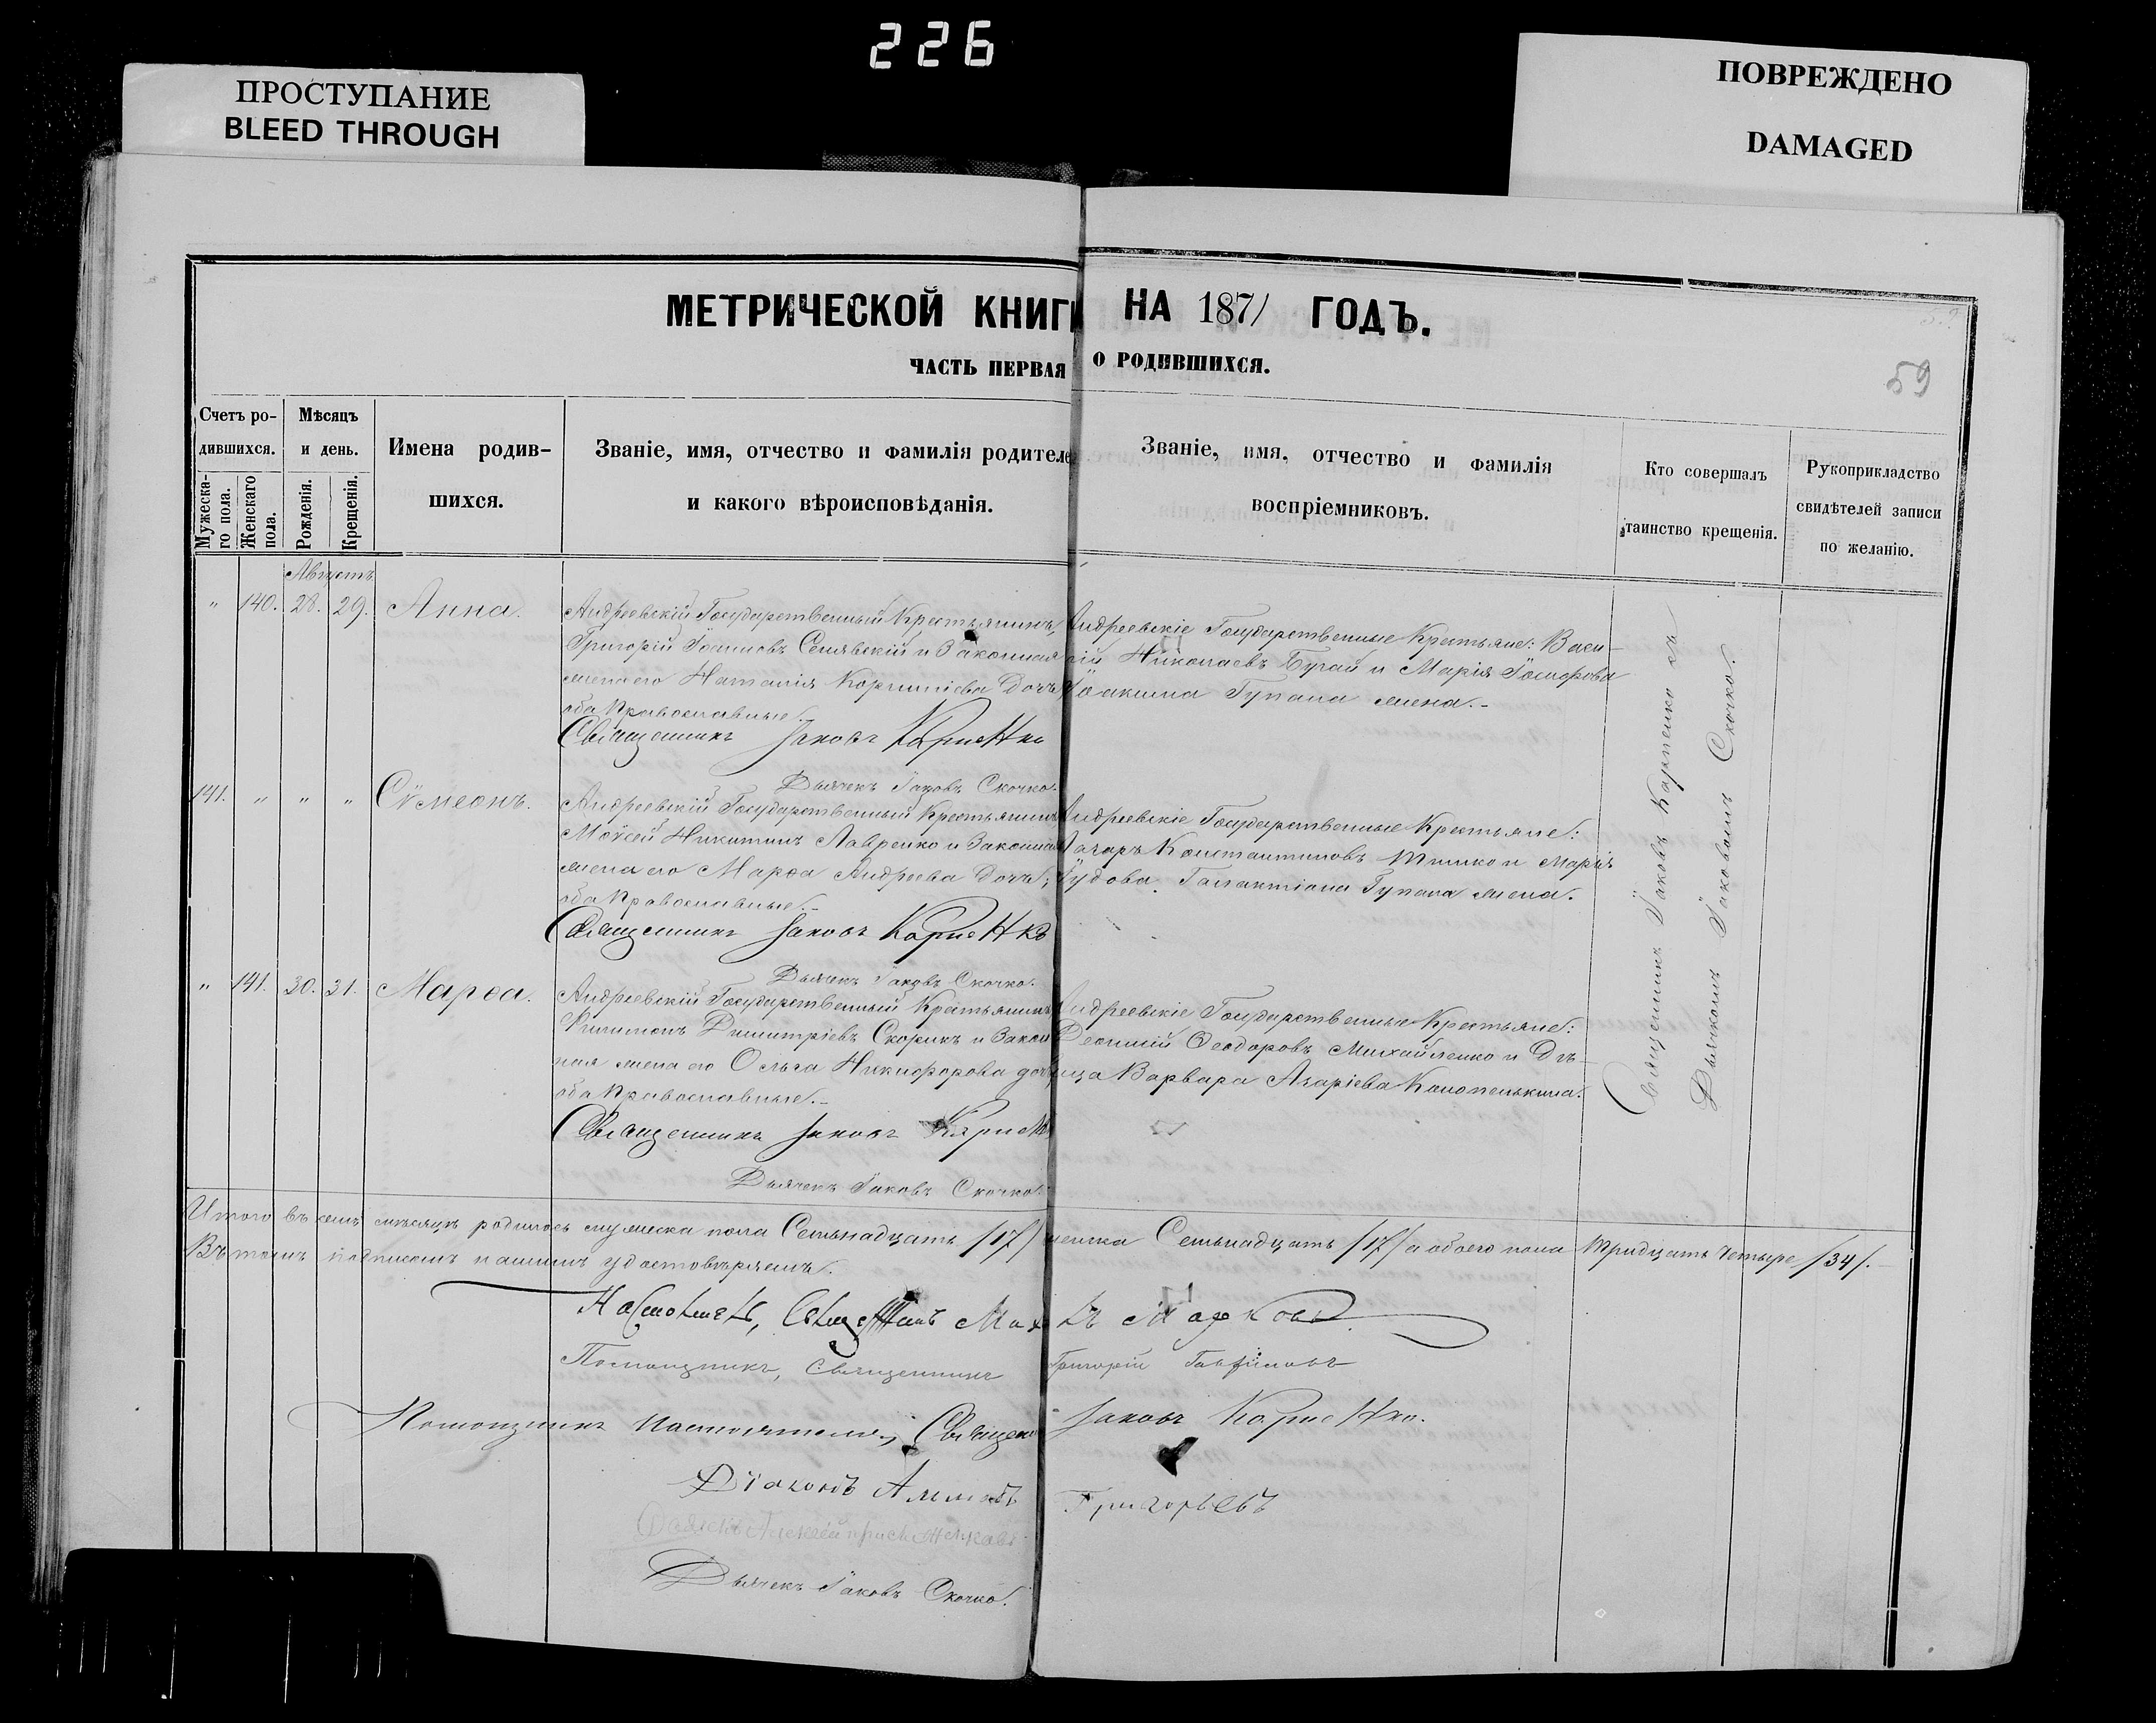 226
ПРОСТУПАНИЕ
BLEED THROUGH
ПОВРЕЖДЕНО
DAMAGED
МЕТРИЧЕСКОЙ КНИГИ НА 1871 ГОДЪ.
ЧАСТЬ ПЕРВАЯ О РОДИВШИХСЯ.
59
Счетъ ро-
дившихся.
Мужеска-
го пола.
Женскаго
пола.
Мѣсяцъ
и день.
Рожденія.
Крещенія.
Имена родив-
шихся.
Званіе, имя, отчество и фамилія родителе
и какого вѣроисповѣданія.
Званіе, имя, отчество и фамилія
воспріемниковъ.
Кто совершалъ
таинство крещенія.
Рукоприкладство
свидѣтелей записи
по желанію.
Августъ
" 140. 28. 29. Анна.
Андреевскій Государственный Крестьянинъ,
Григорій Іоанновъ Семявскій и Законная
жена его Наталія Корнилiева Дочь
оба Православные.-
Священникъ Іаковъ Карпенко
Дьячекъ Іаковъ Скочко.
Андреевскіе Государственные Крестьяне: Васи-
лій Николаевъ Бугай и Марія Іосифова
Іоакима Гупала жена.-
141. " " " Сѵмеонъ.
Андреевскій Государственный Крестьянинъ
Моѵсей Никитинъ Лавренко и Законная
жена его Марѳа Андреева Дочь;
оба Православные.-
Священникъ Іаковъ Карпенко
Дьячекъ Іаковъ Скочко.
Андреевскіе Государственные Крестьяне:
Назаръ Константиновъ и Марія
Іудова, Галактіона Гупала жена.
" 141. 30. 31. Марѳа.
Андреевскій Государственный Крестьянинъ
Филимонъ Димитріевъ Скорикъ и Закон
ная жена его Ольга Никифорова дочь
оба Православные.-
Священникъ Іаковъ
Дьячекъ Іаковъ Скочко.
Андреевскіе Государственные Крестьяне:
Леонтій Ѳеодоровъ Михайленко и Дѣ-
вица Варвара Азаріева Конопелькина.
Священникъ Іаковъ Карпенко съ
Дьячкомъ Іаковомъ Скочко.
Итого въ семъ мѣсяцѣ родилось мужеска пола Семьнадцать /17/ женска Семьнадцать /17/ а обоего пола тридцать четыре /34/.
Въ томъ подписомъ нашимъ удостовѣряемъ.
Настоятель, Священникъ Марковъ
Помощникъ, Священникъ Григорій
Помощникъ Настоятеля, Священ Іаковъ Карпенко.
Діаконъ Григорьевъ
Дьячекъ Іаковъ Скочко.